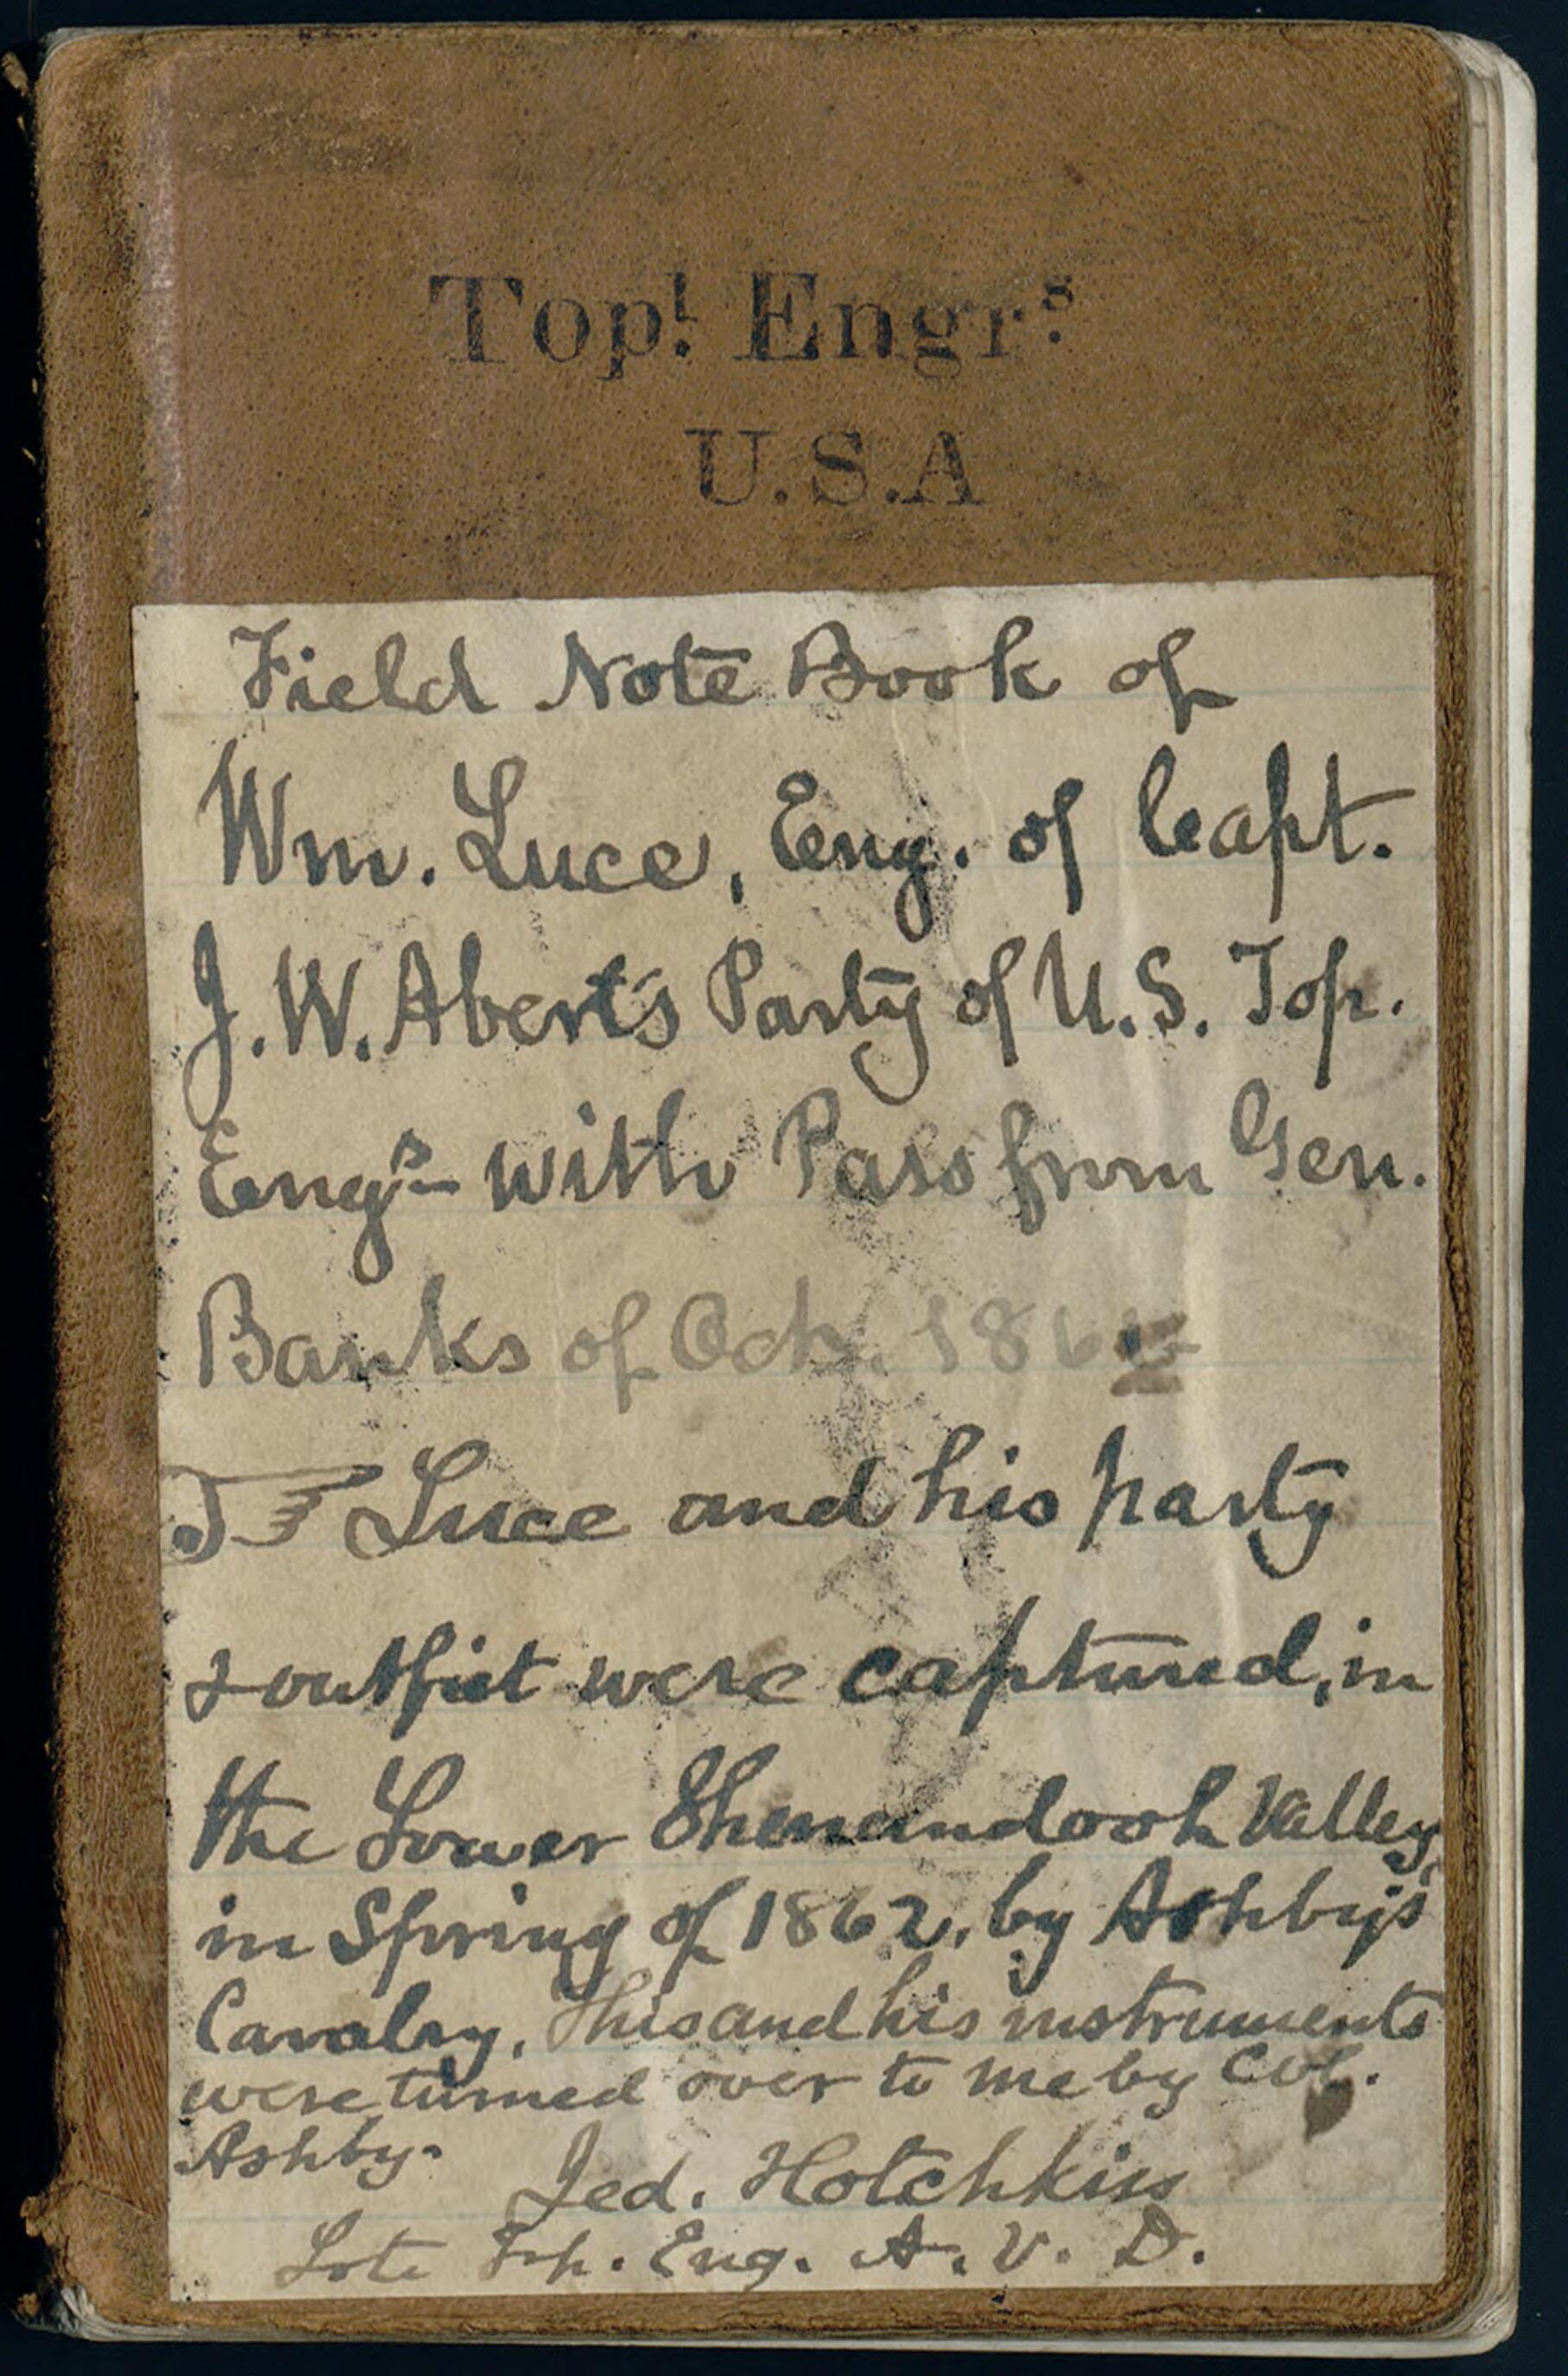 Top^l. Engr^s.
U.S.A
Field Note Book of
Wm. Luce, Eng. of Capt.
J. W. Abert's Party of U.S. Top.
Eng^s - with Pass from Gen.
Banks of Oct. 186
☞ Luce and his party
& outfit were captured, in
the Lower Shenandoah Valley,
in Spring of 1862, by Ashby's
Cavalry. This and his instruments
were turned over to me by Col.
Ashby.
Jed. Hotchkiss
Late Top. Eng. A. V. D.